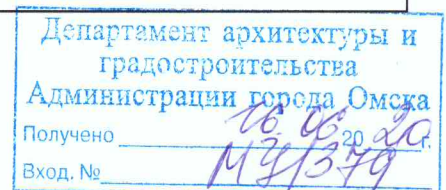 Департамент архитектуры и
градостроительства
Администрации города Омска
Получено 16 06 2020 г.
Вход. № МУ/379